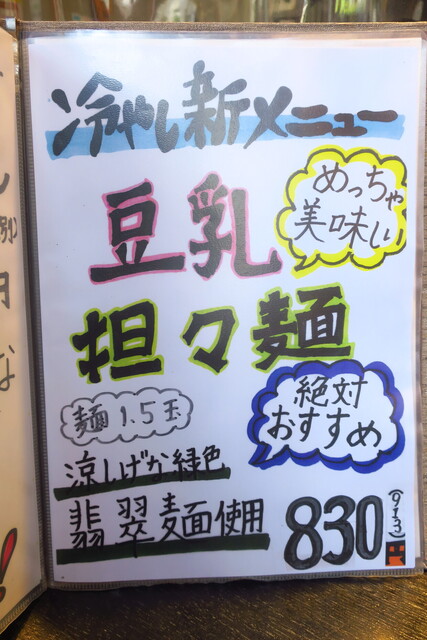 冷やし新メニュー
豆乳
めっちゃ
美味しい
担々麺
麺1.5玉
絶対
おすすめ
涼しげな緑色
翡翠麺使用
830
(913)